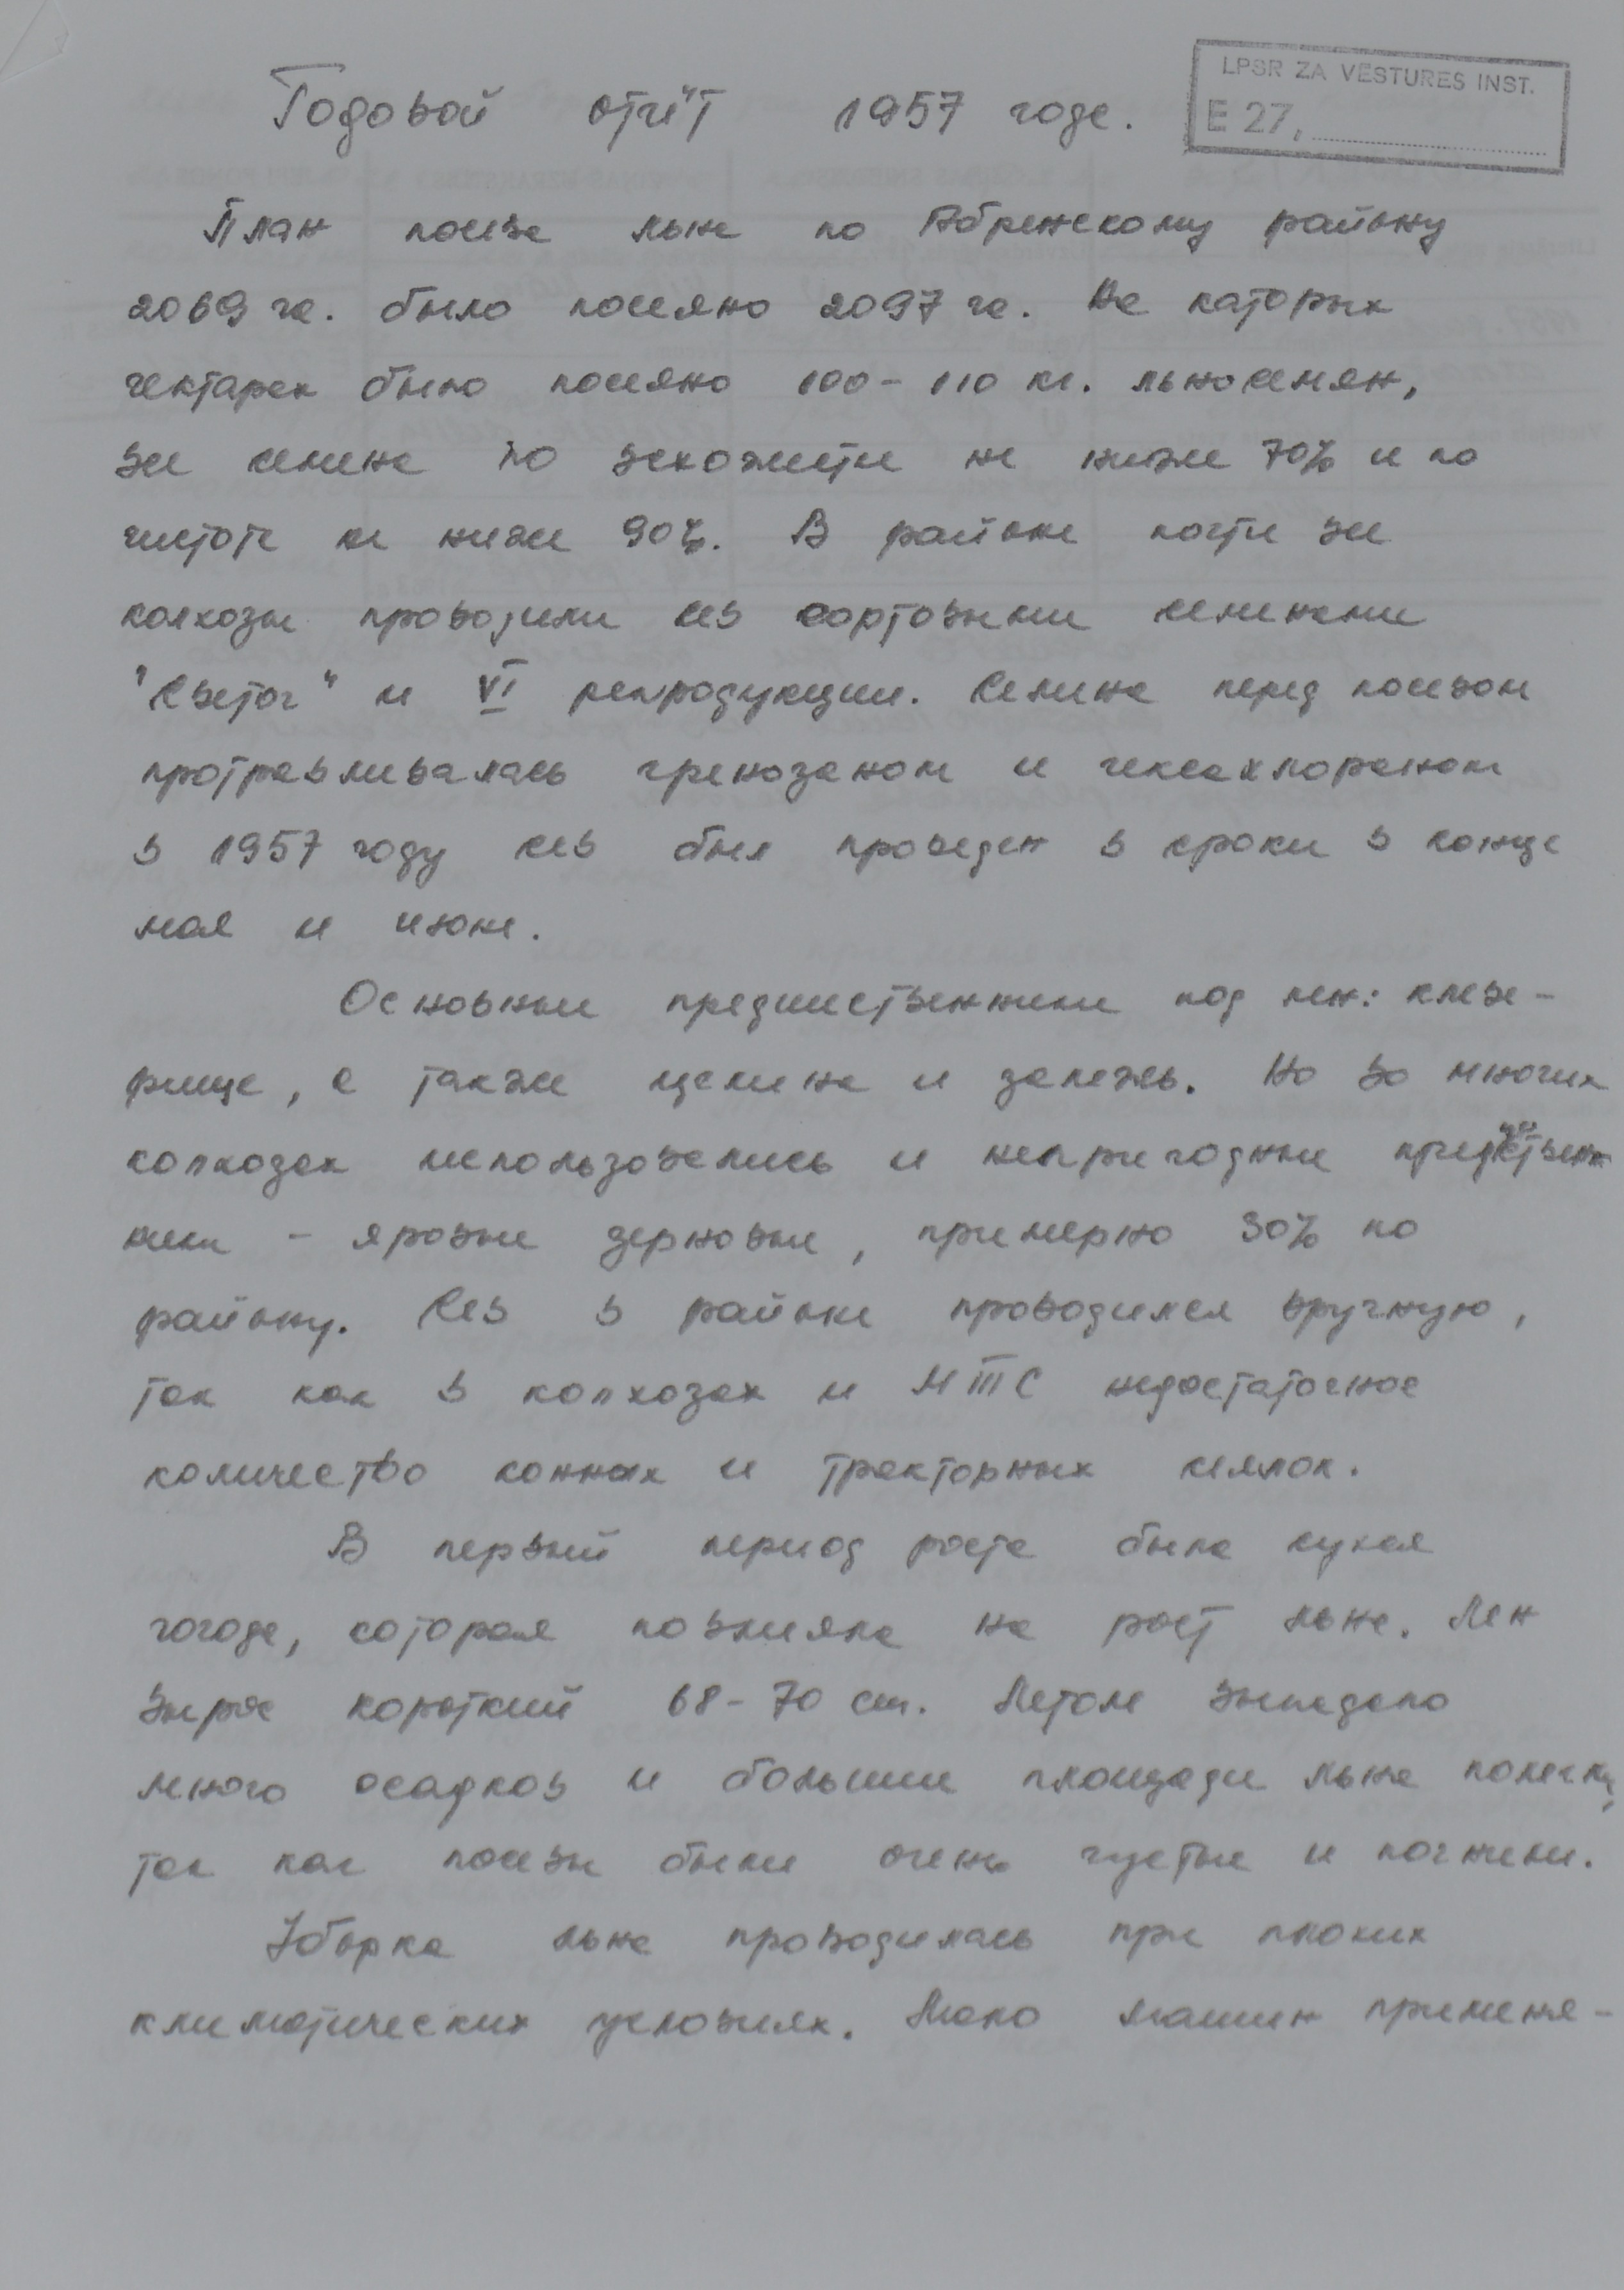 LPSR ZA VĒSTURES INST.
E 27,
Годовой отчёт 1957 года.
План посева льна по Абренскому району
2069 га. было посеяно 2097 га. На каторых
гектарах было посеяно 100-110 кг. льносемян,
все семена по всхожести не ниже 70% и по
чистоте не ниже 90%. В районе почти все
колхозы проводили сев сортовыми семенами
"Светоч" и VI репродукции. Семена перед посевом
протравливалась гренозаном и гексахлораном
в 1957 году сев был проведен в сроки в конце
мая и июне.
Основные предшественники под лен: клеве-
рище, а также целина и залежь. Но во многих
колхозах использовались и непригодные предшественн
ники - яровые зерновые, примерно 30% по
району. Сев в районе проводился вручную,
так как в колхозах и МТС недостаточное
количество конных и тракторных сеялок.
В первый период роста была сухая
погода, которая повлияла на рост льна. Лен
вырос короткий 68-70 см. Летом выпадало
много осадков и большие площади льна полегли,
так как посевы были очень густые и погнили.
Уборка льна проводилась при плохих
климатических условиях. Мало машин применя-